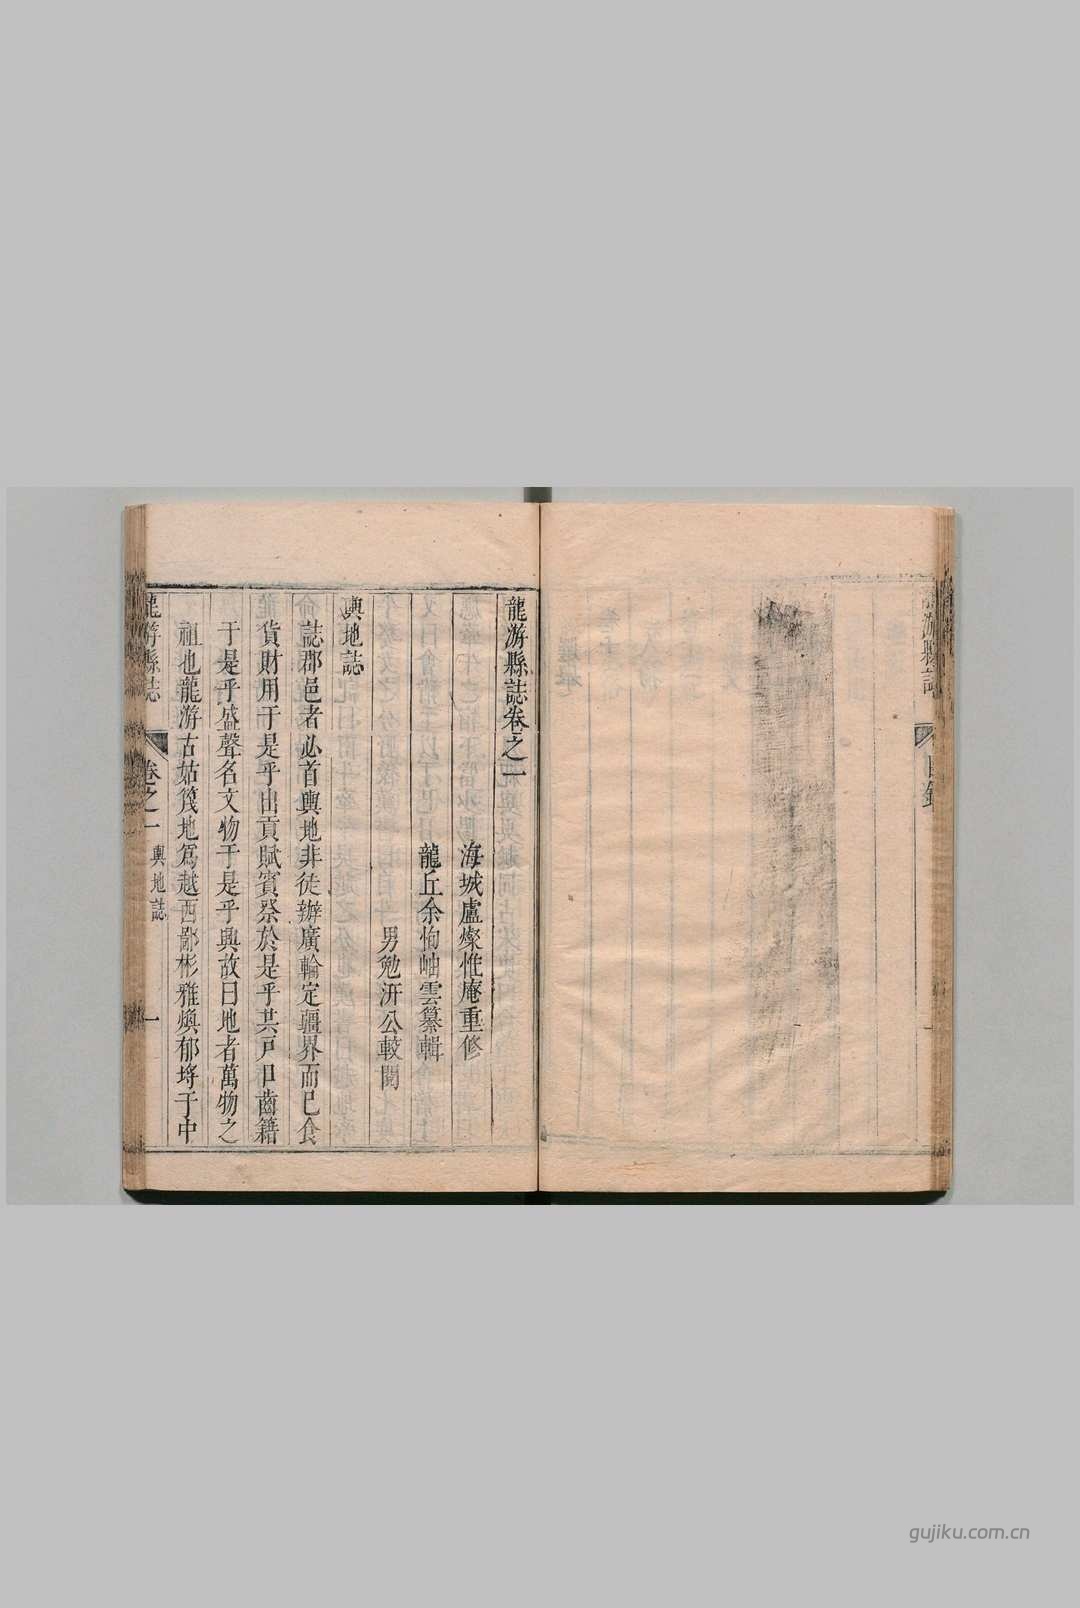 龍游縣誌
目錄
龍游縣誌卷之一
海城盧燦惟庵重修
龍丘余恂岫雲纂輯
男勉汧公較閱
輿地誌
誌郡邑者必首輿地非徒辦廣輪定疆界而已食
貨財用于是乎出貢賦賓祭於是乎共戸口齒籍
于是乎盛聲名文物于是乎興故曰地者萬物之
祖也龍游古姑篾地爲越西鄙彬雅煥郁埓于中
龍游縣誌
卷之一
輿地誌
一
gujiku.com.cn